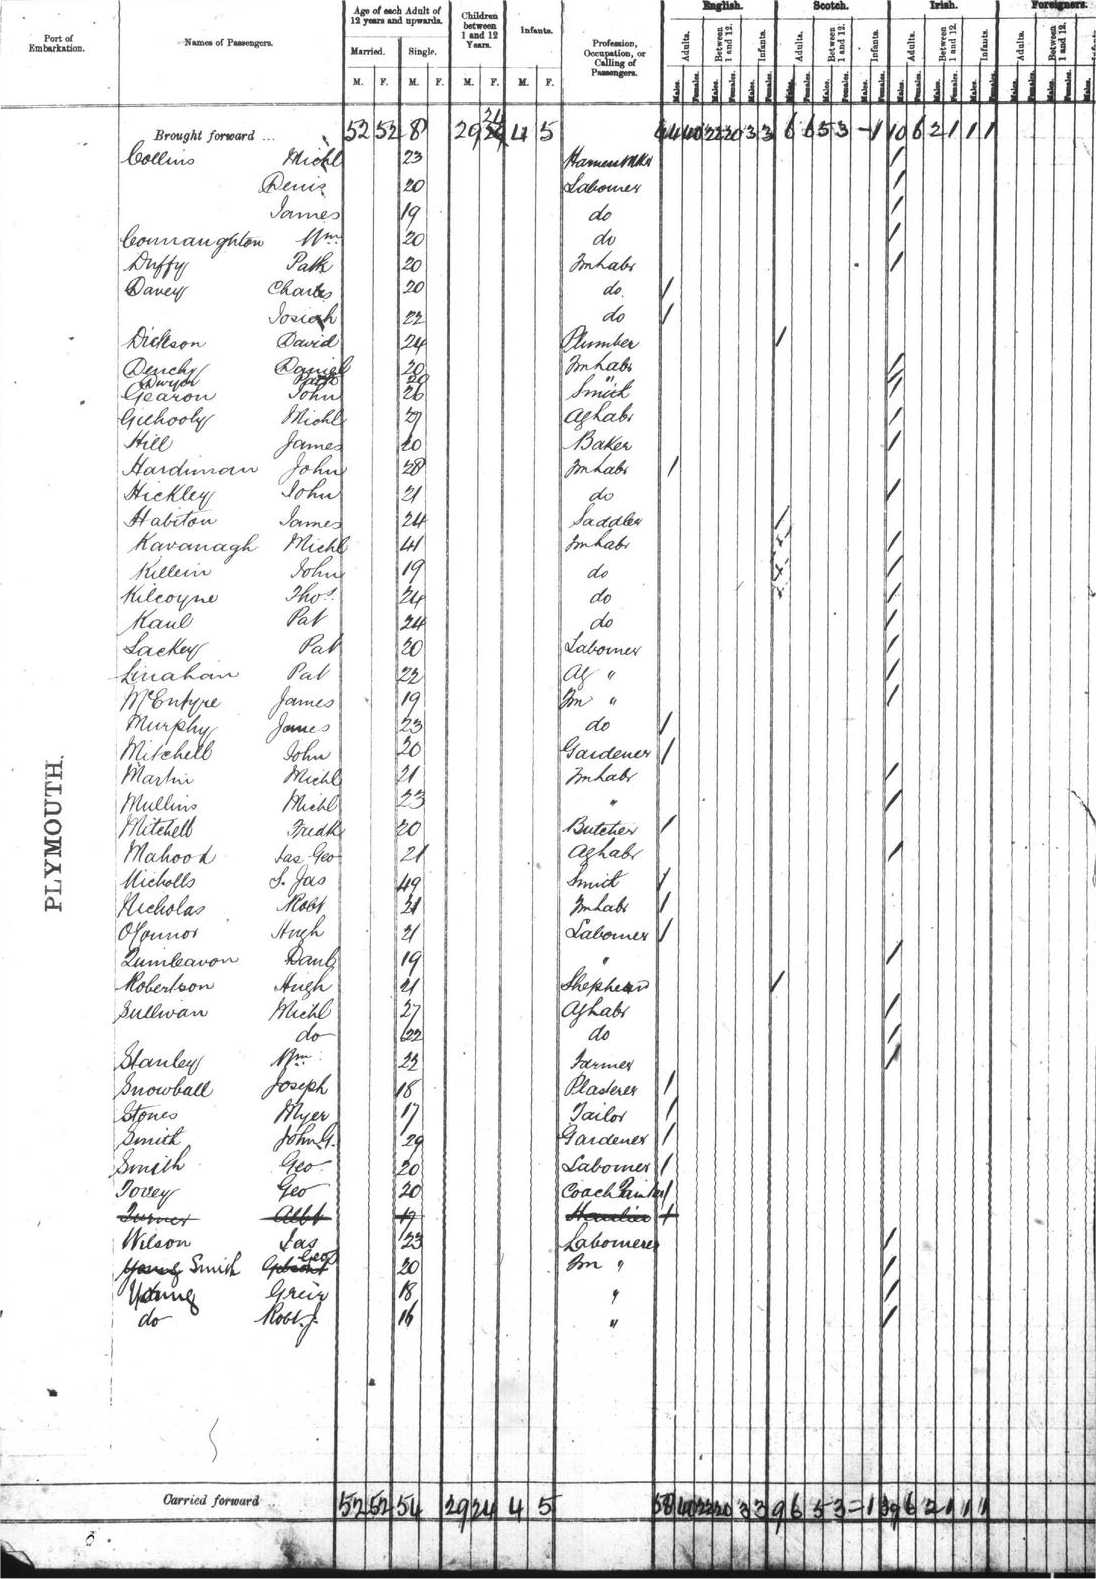 Port of Embarkation. Names of Passengers. Age of each Adult of 12 years and upwards. Children between 1 and 12 Years. Infants. Profession, Occupation, or Calling of Passengers. English. Scotch. Irish. Foreigners.
Married. Single. Adults. Between 1 and 12. Infants. Adults. Between 1 and 12. Infants. Adults. Between 1 and 12. Infants. Adults. Between 1 and 12.
M. F. M. F. M. F. M. F. Males. Females. Males. Females. Males. Females. Males. Females. Males. Females. Males. Females. Males. Females. Males. Females. Males. Females. Males. Females. Males. Females. Males.
Brought forward ... 52 52 8 29 24 4 5 44 40 22 20 3 3 6 6 5 3 - 1 10 6 2 1 1 1
Collins Michl 23 /
Denis 20 Labourer /
James 19 do /
Connaughton Wm 20 do /
Duffy Patk 20 Fmlabr /
Davey Charles 20 do /
Josiah 22 do /
Dickson David 24 Plumber /
Denchy Daniel 20 Fmlabr /
Dwyer Patk 20 " /
Gearon John 26 Smith /
Gilhooly Michl 27 Aglabr /
Hill James 20 Baker /
Hardiman John 28 Fmlabr /
Hickley John 21 do /
James 24 Saddler /
Kavanagh Michl 41 Fmlabr /
Killein John 19 do /
Kilcoyne Thos. 24 do /
Kaul Pat 24 do /
Lackey Pat 20 Labourer /
Linahan Pat 22 Ag " /
McEntyre James 19 Fm " /
Murphy James 23 do /
Mitchell John 20 Gardener /
Martin Michl 21 Fmlabr /
Mullins Michl 23 " /
Mitchell Fredk 20 Butcher /
Mahood Jas Geo 21 Aglabr /
Nicholls S. Jas 49 Smith /
Nicholas Robt 21 Fmlabr /
O'Connor Hugh 21 Labourer /
Danl 19 " /
Robertson Hugh 21 Shepherd /
Sullivan Michl 27 Aglabr /
do 22 do /
Stanley Wm 22 Farmer /
Snowball Joseph 18 Plasterer /
Stones Myer 17 Tailor /
Smith John G. 29 Gardener /
Smith Geo 20 Labourer /
Tovey Geo 20 Coach Painter /
Turner Albt 19 /
Wilson Jas 23 Labourer /
Young Smith Geo 20 Fm " /
Young Greir 18 " /
do Robt. J. 16 " /
PLYMOUTH.
Carried forward .. 52 52 54 29 24 4 5 58 40 22 20 3 3 9 6 5 3 - 1 39 6 2 1 1 1